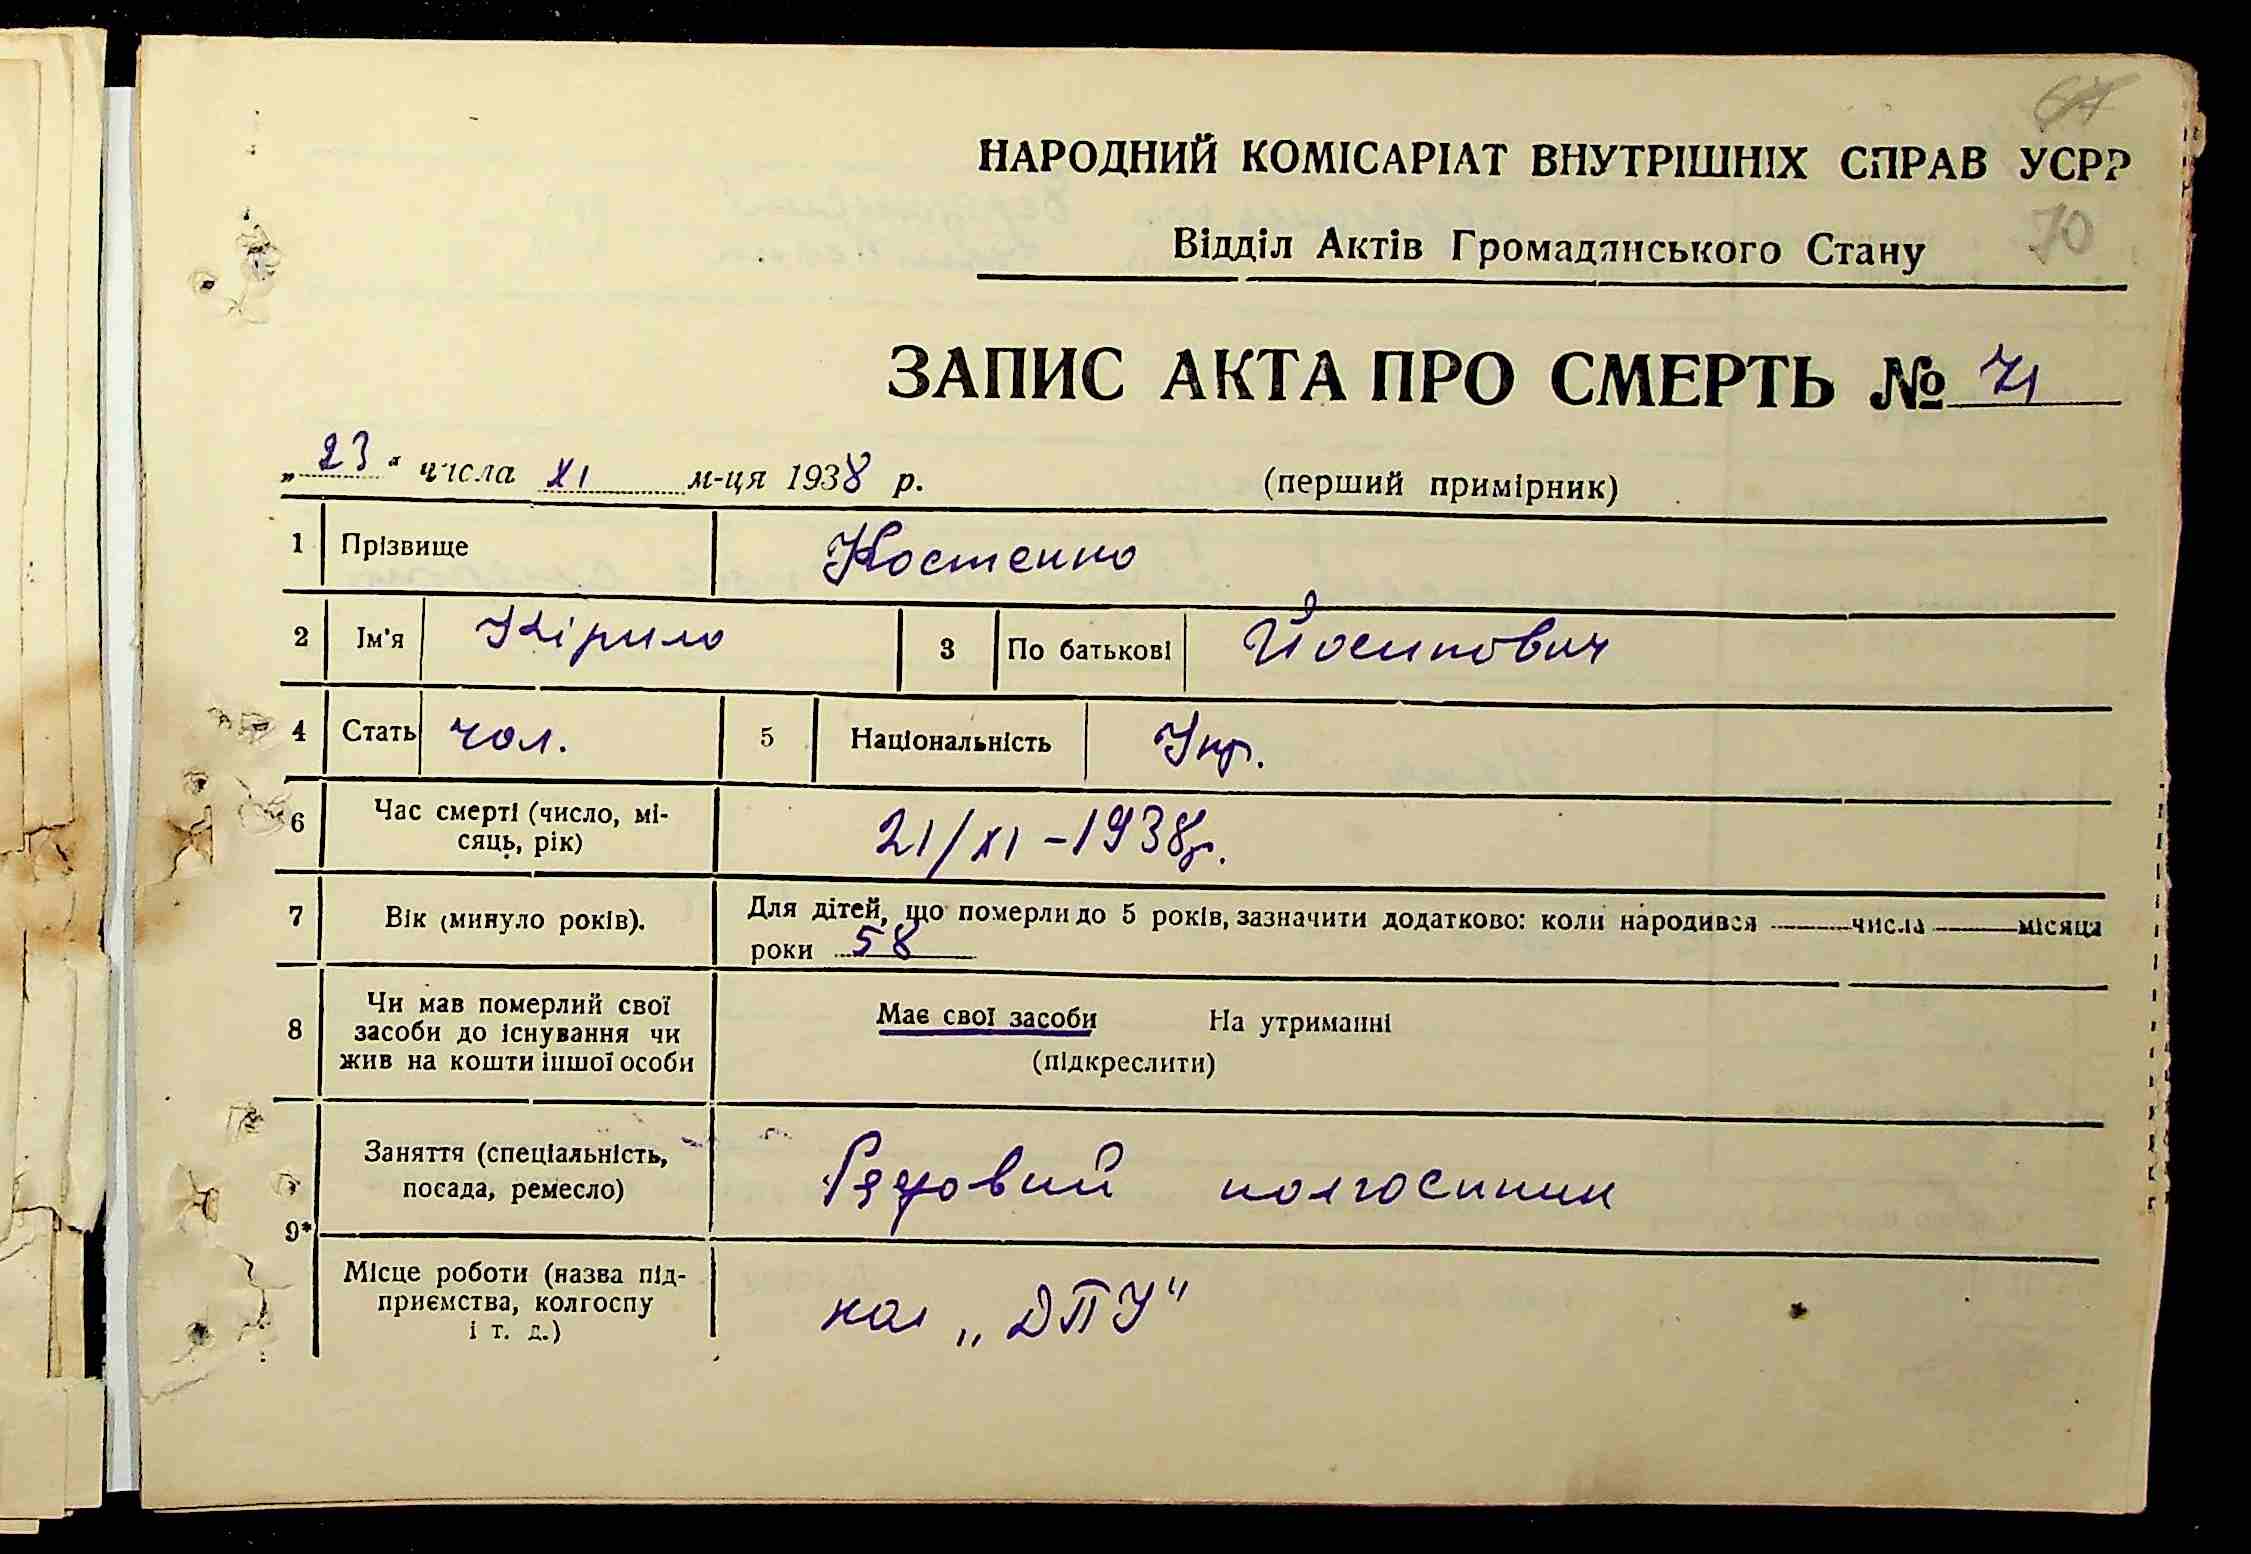 НАРОДНИЙ КОМІСАРІАТ ВНУТРІШНІХ СПРАВ УСРР
70
Відділ Актів Громадянського Стану
ЗАПИС АКТА ПРО СМЕРТЬ № 71
„23“ числа XI м-ця 1938 р. (перший примірник)
1 Прізвище Костенко
2 Ім'я Кірило 3 По батькові Йосипович
4 Стать чол. 5 Національність Укр.
6 Час смерті (число, мі-
сяць, рік) 21/XI – 1938р.
7 Вік (минуло років). Для дітей, що померли до 5 років, зазначити додатково: коли народився числа місяця
роки 58
8 Чи мав померлий свої
засоби до існування чи
жив на кошти іншої особи
Має свої засоби На утриманні
(підкреслити)
9* Заняття (спеціальність,
посада, ремесло) Рядовий колгоспник
Місце роботи (назва під-
приємства, колгоспу
і т. д.) кол „ДПУ"